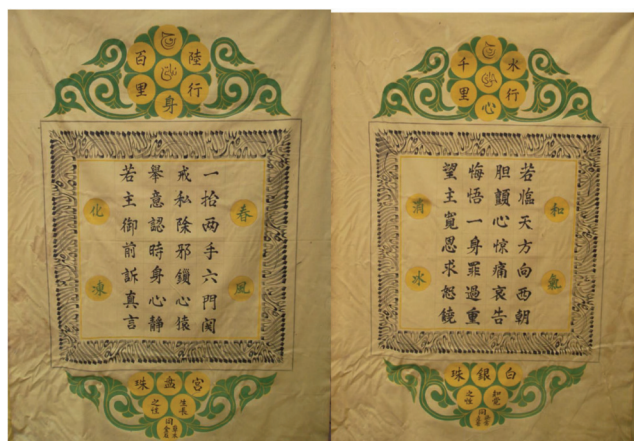 陸行
百里
身
春風
一拾两手六門闗
戒私除邪鎖心猿
舉意認時身心靜
若主御前訴真言
化凍
水行
千里
心
和氣
若臨天方向西朝
胆顫心惊痛哀告
悔悟一身罪過重
望主寬恩求恕饒
消氷
白銀珠